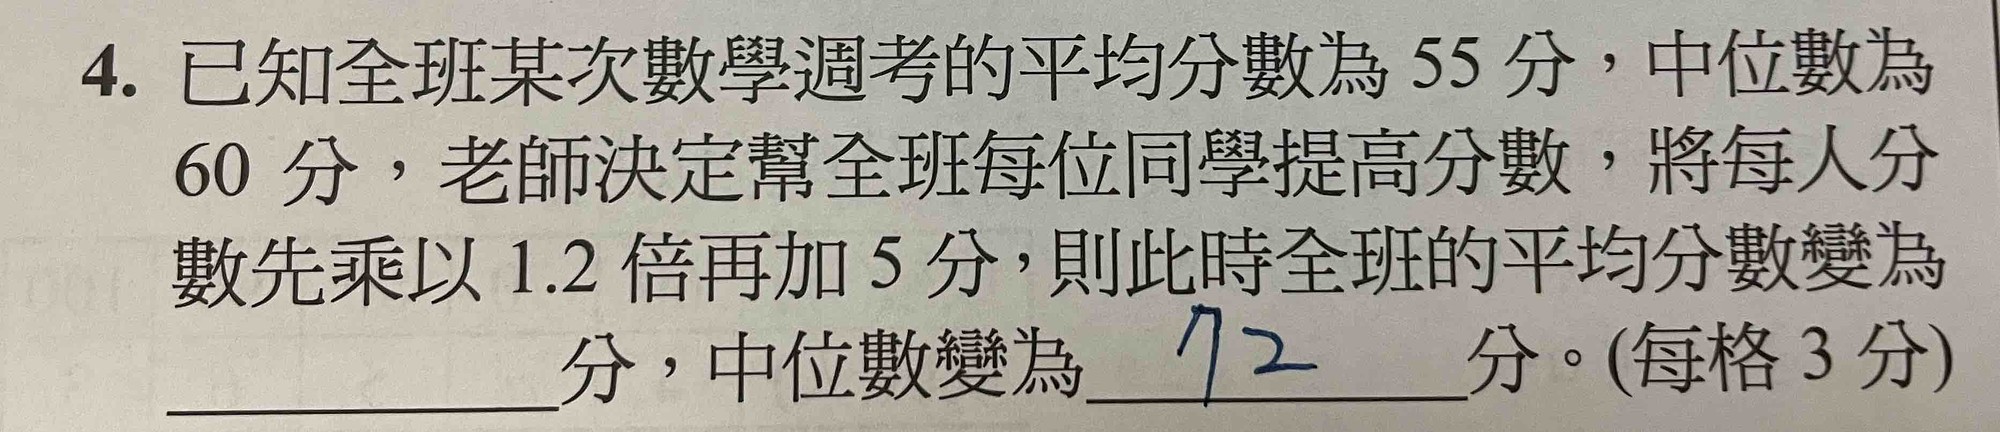 4. 已知全班某次數學週考的平均分數為 55 分，中位數為
60 分，老師決定幫全班每位同學提高分數，將每人分
數先乘以 1.2 倍再加 5 分，則此時全班的平均分數變為
＿＿＿＿＿分，中位數變為 72 分。(每格 3 分)